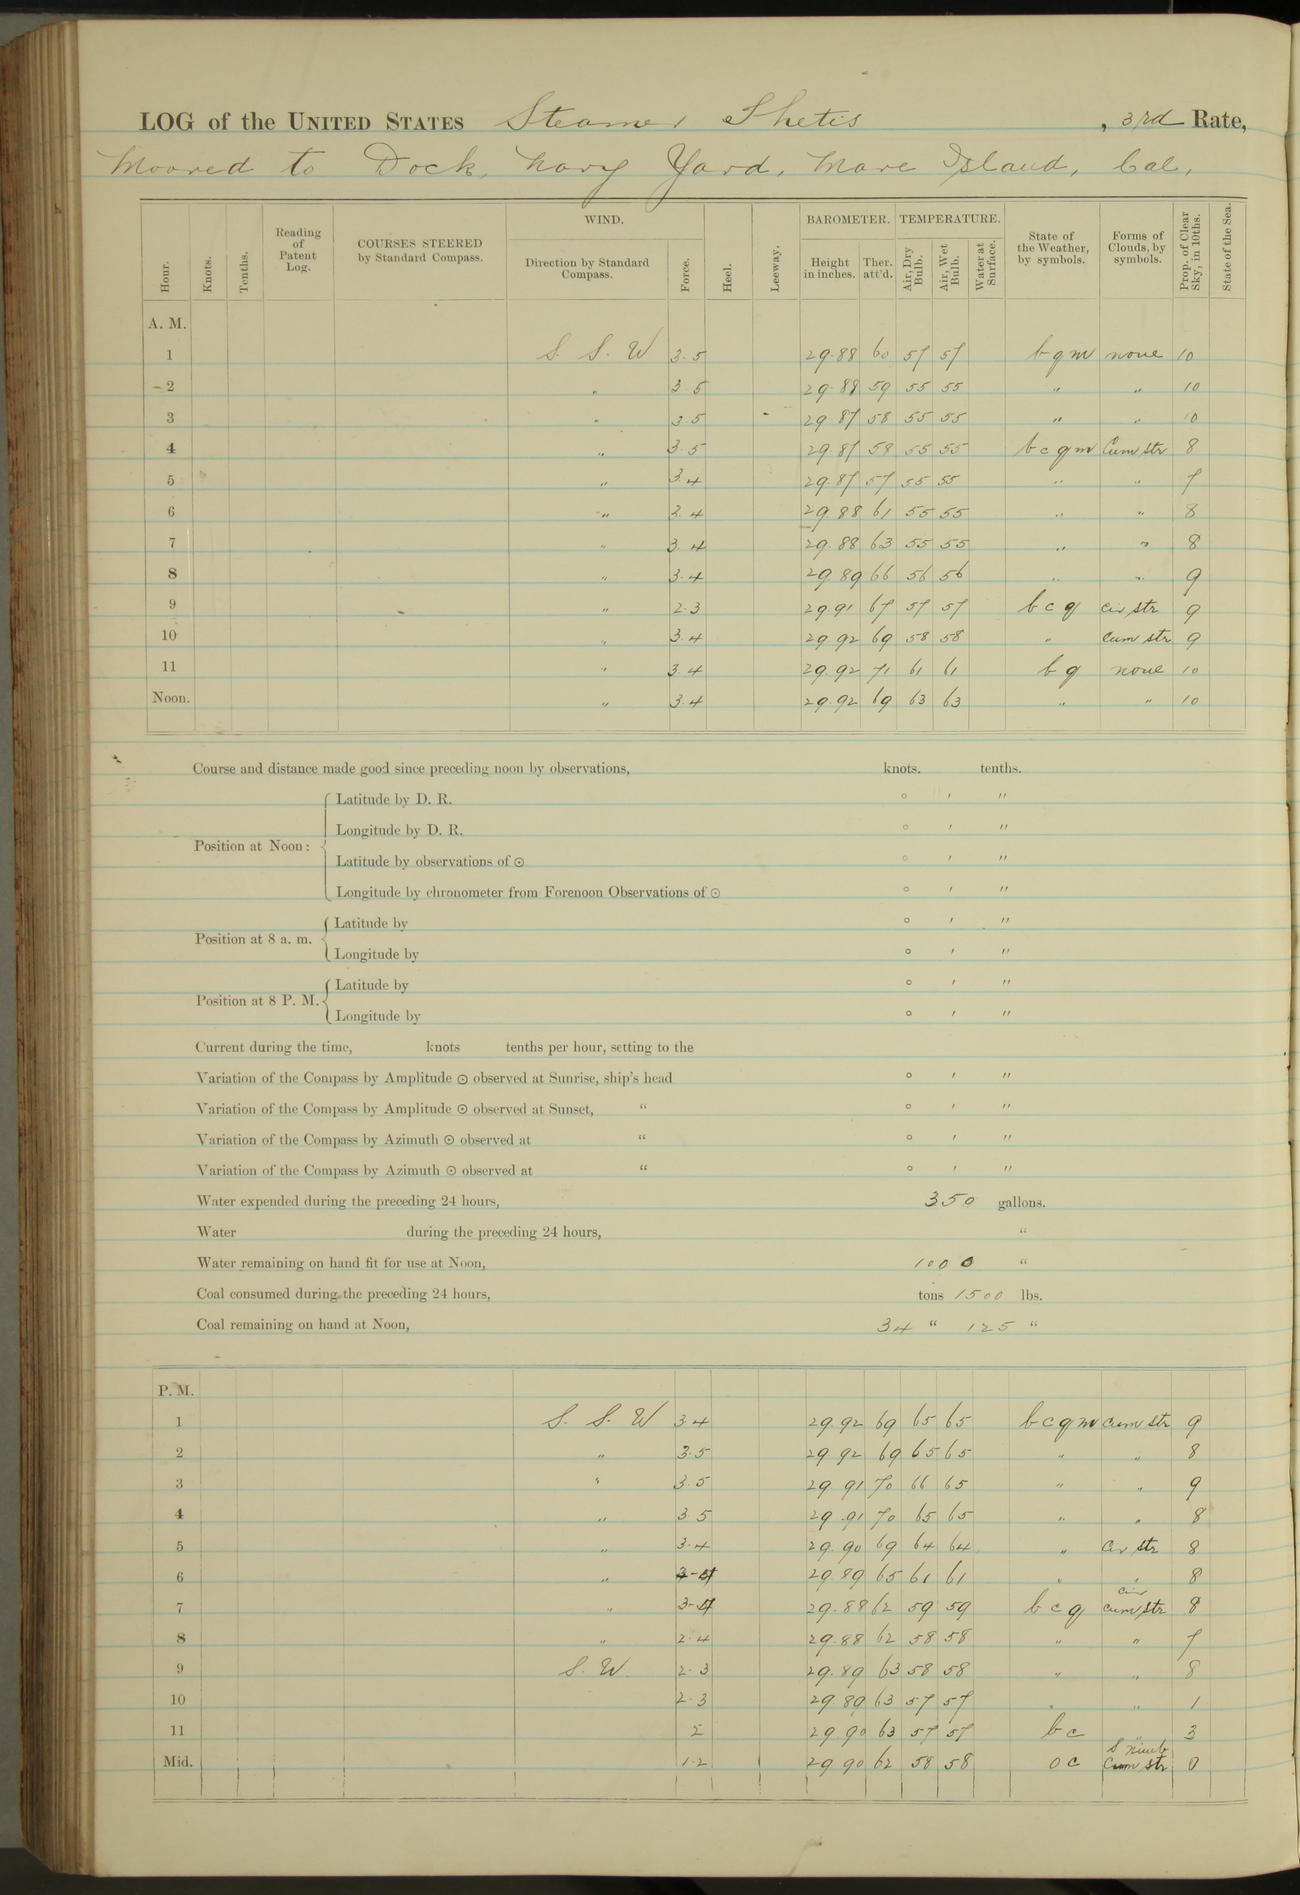 LOG of the UNITED STATES Steamer Thetis , 3rd Rate,
Moored to Dock, Navy Yard, Mare Island, Cal,
Hour. Knots. Tenths. Reading of Patent Log. COURSES STEERED by Standard Compass. WIND. Direction by Standard Compass. Force. Heel. Leeway. BAROMETER. Height in inches. Ther. att'd. TEMPERATURE. Air, Dry Bulb. Air, Wet Bulb. Water at Surface. State of the Weather, by symbols. Forms of Clouds, by symbols. Prop. of Clear Sky, in 10ths. State of the Sea.
A. M.
1 S. S. W 3.5 29.88 60 57 57 b q m none 10
2 " 3.5 29.88 59 55 55 " " 10
3 " 3.5 29.87 58 55 55 " " 10
4 " 3.5 29.87 58 55 55 b c q m Cum str 8
5 " 3.4 29.87 57 55 55 " " 7
6 " 3.4 29.88 61 55 55 " " 8
7 " 3.4 29.88 63 55 55 " " 8
8 " 3.4 29.89 66 56 56 " " 9
9 " 2.3 29.91 67 57 57 b c q cir str 9
10 " 3.4 29.92 69 58 58 " cum str 9
11 " 3.4 29.92 71 61 61 b q none 10
Noon. " 3.4 29.92 69 63 63 " " 10
Course and distance made good since preceding noon by observations, knots. tenths.
Latitude by D. R. ° ′ ″
Longitude by D. R. ° ′ ″
Position at Noon:
Latitude by observations of ☉ ° ′ ″
Longitude by chronometer from Forenoon Observations of ☉ ° ′ ″
Latitude by ° ′ ″
Position at 8 a. m.
Longitude by ° ′ ″
Latitude by ° ′ ″
Position at 8 P. M.
Longitude by ° ′ ″
Current during the time, knots tenths per hour, setting to the
Variation of the Compass by Amplitude ☉ observed at Sunrise, ship's head ° ′ ″
Variation of the Compass by Amplitude ☉ observed at Sunset, " ° ′ ″
Variation of the Compass by Azimuth ☉ observed at " ° ′ ″
Variation of the Compass by Azimuth ☉ observed at " ° ′ ″
Water expended during the preceding 24 hours, 350 gallons.
Water during the preceding 24 hours, "
Water remaining on hand fit for use at Noon, 1000 "
Coal consumed during the preceding 24 hours, tons 1500 lbs.
Coal remaining on hand at Noon, 34 " 125 "
P. M.
1 S. S. W 3 4 29 92 69 65 65 b c q m cum str 9
2 " 3.5 29 92 69 65 65 " " 8
3 " 3.5 29 91 70 66 65 " " 9
4 " 3 5 29.91 70 65 65 " " 8
5 " 3.4 29.90 69 64 64 " Cir str 8
6 " 3-4 29 89 65 61 61 " " 8
7 " 3-4 29.88 62 59 59 b c q cir cum str 8
8 " 2.4 29.88 62 58 58 " " 7
9 S. W. 2.3 29.89 63 58 58 " " 8
10 2.3 29.89 63 57 57 " " 1
11 2 29 90 63 57 57 b c " 3
Mid. 1.2 29 90 62 58 58 o c Cum str 0